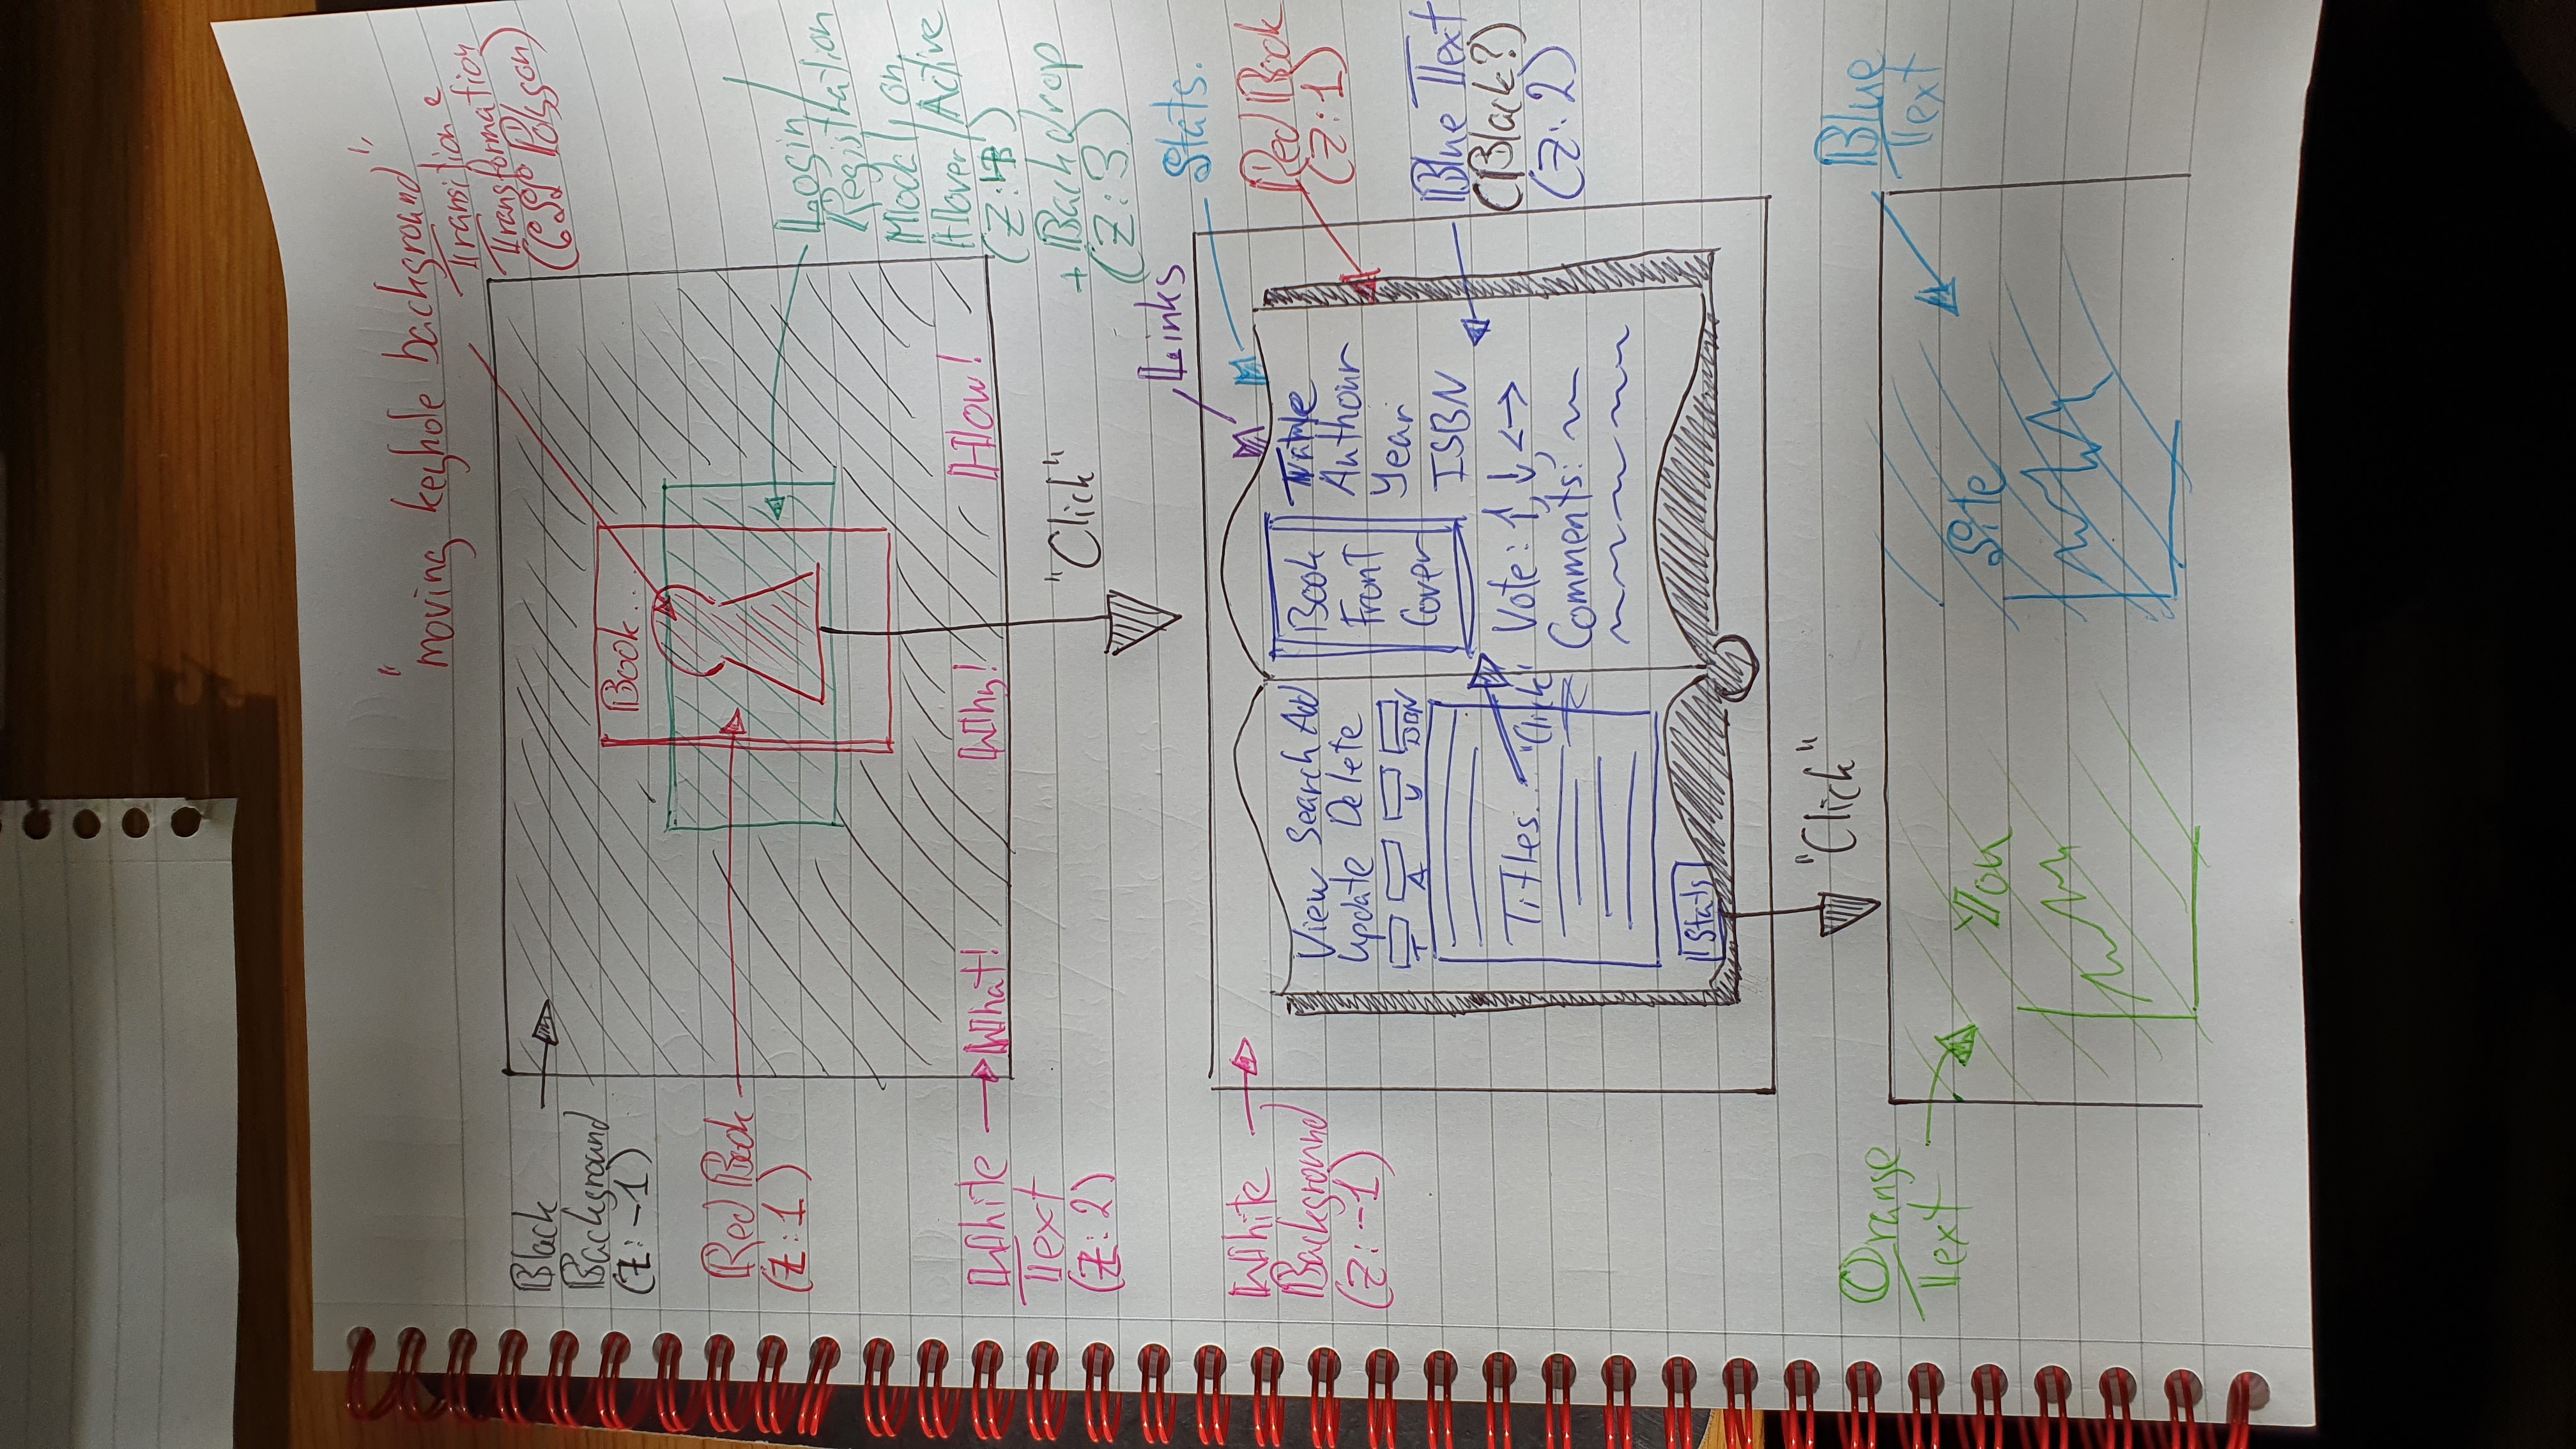 "moving keyhole background",
Transition &
Transformation
(CSS Polygon)
Black
Background
(Z:-1)
Book...
Red Book
(Z:1)
Login/
Registration
Modal, on
Hover/Active
+ Backdrop
(Z:3)
White
Text
(Z:2)
What!
Why!
How!
"Click"
Links
Stats.
White
Background
(Z:-1)
View Search Add
Update Delete
T A Y ISBN
Titles... "Click"
Stats
Book
Front
Cover
Authour
Year
ISBN
Vote: ↑, ↓, <->
Comments:
Red Book
(Z:1)
Blue Text
(Black?)
(Z:2)
"Click"
Orange
Text
You
Site
Blue
Text